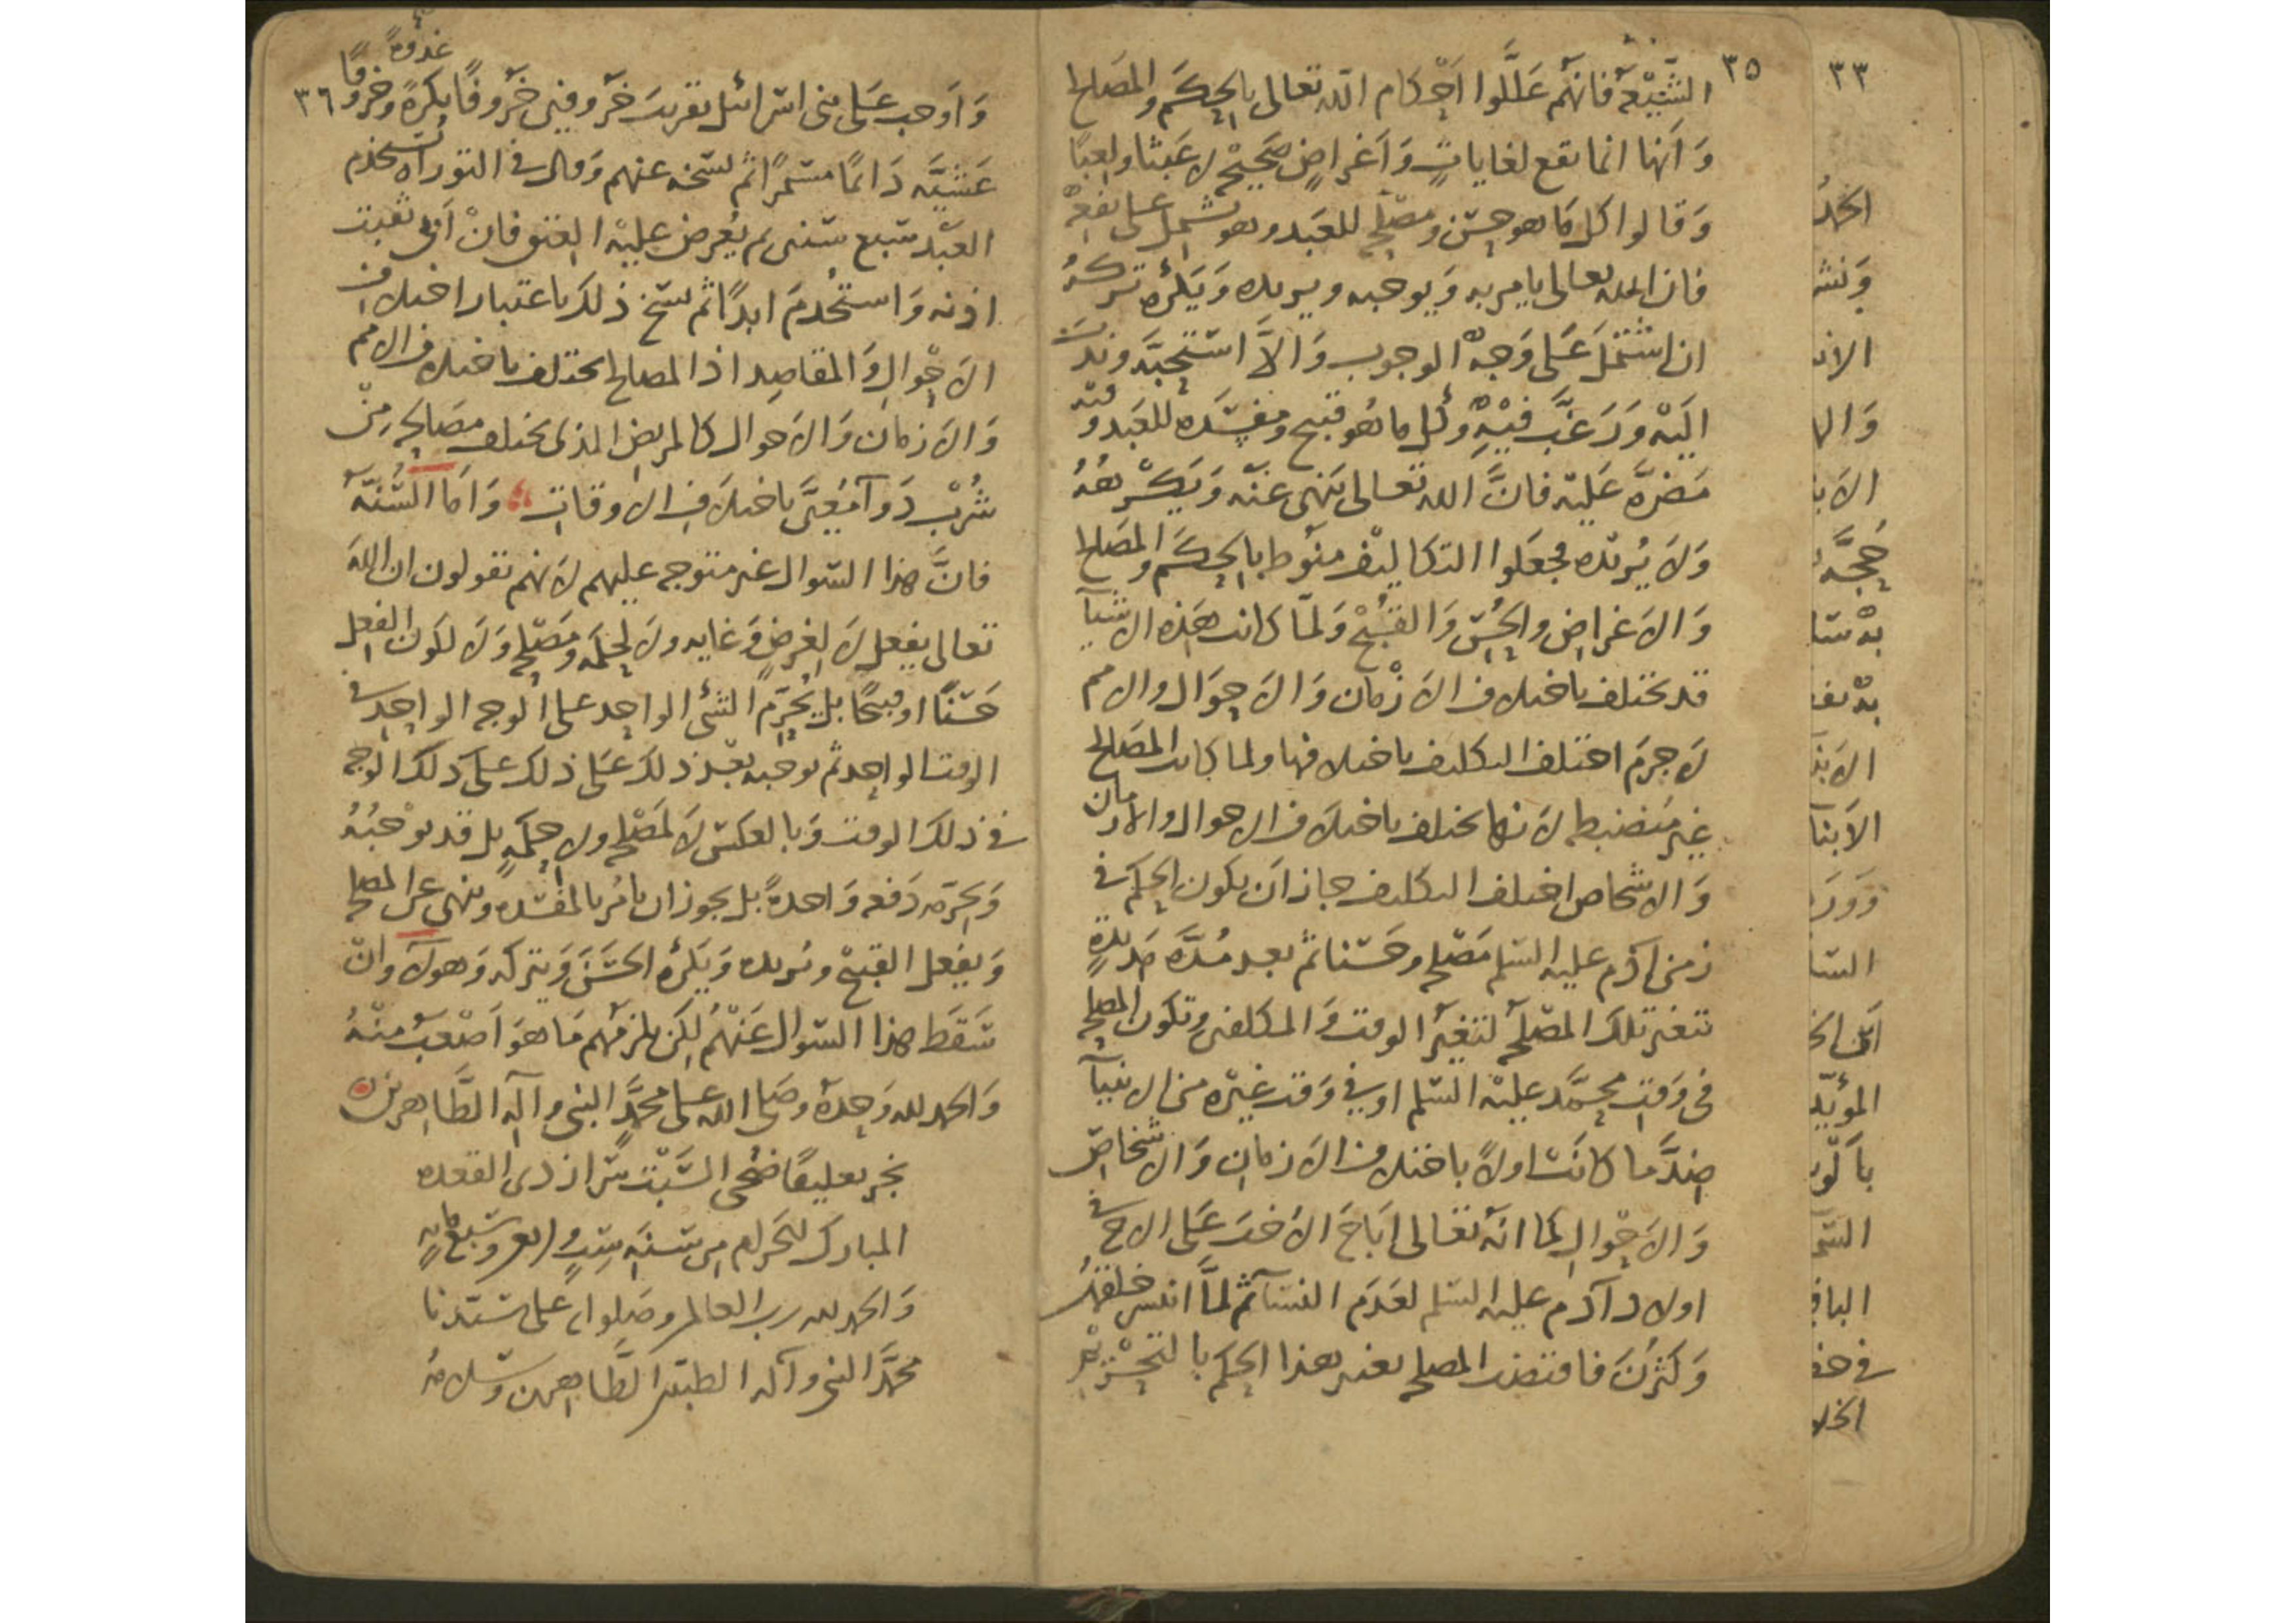 ٣٣
٣٥
الشيعة فانهم عللوا احكام الله تعالى بالحكم والمصالح
وانها انما تقع لغايات واغراض صحيحة لا عبثا ولعبا
وقالوا كل ما هو حسن ومصلحة للعبد وهو يشمل على نفعه
فان الله تعالى يامر به ويوجبه ويريده ويكره تركه
ان اشتمل على وجه الوجوب والا استحبه وندب
اليه ورغب فيه وكل ما هو قبيح ومفسدة للعبد وفيه
مضرة عليه فان الله تعالى ينهى عنه ويكرهه
ولا يريده فجعلوا التكاليف منوطة بالحكم والمصالح
والاغراض والحسن والقبح ولما كانت هذه الاشيآ
قد تختلف باختلاف الازمان والاحوال والامم
لا جرم اختلف التكليف باختلافها ولما كانت المصالح
غير منضبطة لانها تختلف باختلاف الاحوال والازمان
والاشخاص اختلف التكليف جاز ان يكون الحكم في
زمن آدم عليه السلم مصلحة وحسنا ثم بعد مدة مديدة
تتغير تلك المصلحة لتغير الوقت والمكلفين وتكون المصلحة
في وقت محمد عليه السلم او في وقت غيره من الانبيآ
ضد ما كانت اولاً باختلاف الازمان والاشخاص
والاحوال كما انه تعالى اباح الاخت على الاخ في
اولاد آدم عليه السلم لعدم النسآ ثم لما خلقهن
وكثرن فاقتضت المصلحة تغير هذا الحكم بالتحريم
٣٦
غدوة
واوجب على بني اسرائيل تقريب خروفين خروفًا بكرة وخروفًا
عشية دائمًا مستمرًا ثم نسخه عنهم وقال في التوراة يستخدم
العبد سبع سنين ثم يعرض عليه العتق فان ابى ثقبت
اذنه واستخدم ابدًا ثم نسخ ذلك باعتبار اختلاف
الاحوال والمقاصد اذ المصالح تختلف باختلاف الامم
والازمان والاحوال كالمريض الذي تختلف مصالحه من
شرب دوآ معين باختلاف الاوقات وأما السُّنّة
فان هذا السوال غير متوجه عليهم لانهم يقولون ان الله
تعالى يفعل لا لغرض وغايه ولا لحكمة ومصلحة ولا لكون الفعل
حسنًا او قبيحًا بل يحرم الشئ الواحد على الوجه الواحد في
الوقت الواحد ثم يوجبه بعد ذلك على ذلك على ذلك الوجه
في ذلك الوقت وبالعكس لا لمصلحة ولا حكمة بل قد يوجبه
ويحرمه دفعة واحدةً بل يجوز ان يامر بالمفسدة وينهى عن المصلحة
ويفعل القبيح ويريده ويكره الحسن ويتركه وهولآ وان
سقط هذا السوال عنهم لكن يلزمهم ما هو اصعب منه
والحمد لله وحده وصلى الله على محمد النبي وآله الطاهرين
نجز تعليقًا ضحى السبت من ذي القعدة
المبارك الحرام من سنة ست واربعين وسبع مايه
والحمد لله رب العالمين وصلواته على سيدنا
محمد النبي وآله الطيبين الطاهرين وسلامه